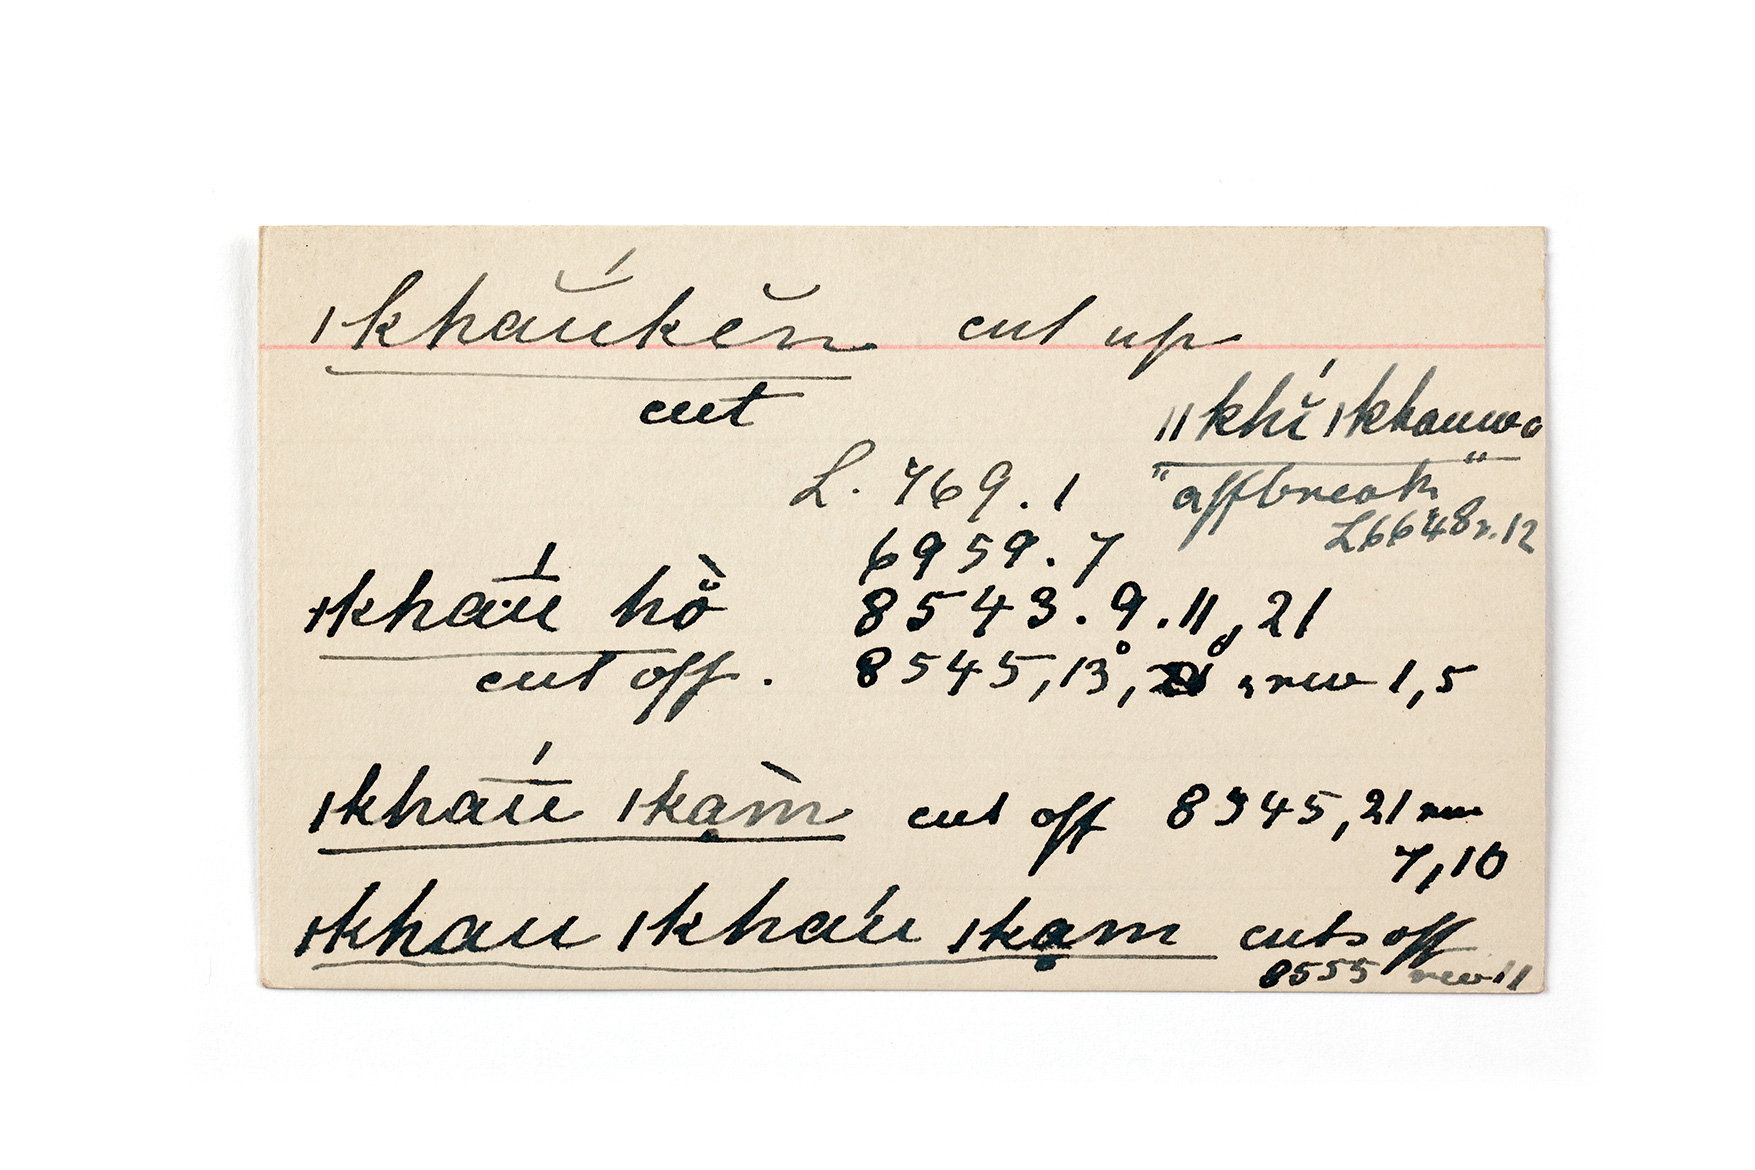 ǀkhắŭkĕn cut up
cut
ǁkhĭ́ ǀkhauwa
"affbreak"
L. 769.1
L6648r.12
6959.7
ǀkhā́ū hŏ̀ 8543.9.11, 21
cut off. 8545,13, rev 1,5
ǀkhā́ū ǀkạm̀ cut off 8545,21 rev
7,10
ǀkhau ǀkháu ǀkạm cuts off
8555 rev 11